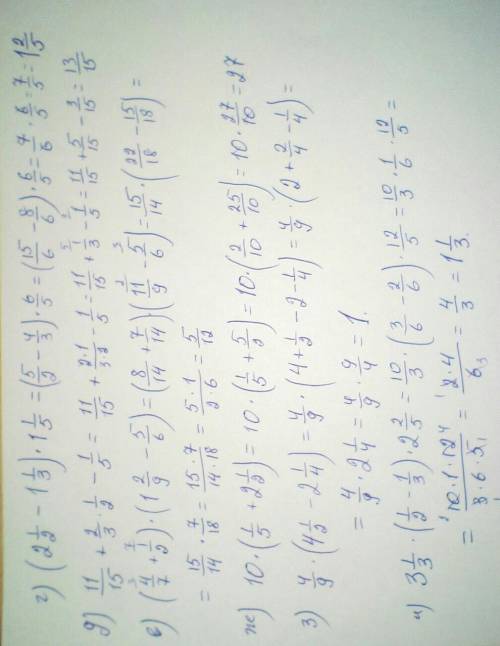 г) (2 1/2 − 1 1/3) · 1 1/5 = (5/2 − 4/3) · 6/5 = (15/6 − 8/6) · 6/5 = 7/6 · 6/5 = 7/5 = 1 2/5
д) 11/15 + 2/3 · 1/2 − 1/5 = 11/15 + (2·1)/(3·2) − 1/5 = 11/15 + 1/3 − 1/5 = 11/15 + 5/15 − 3/15 = 13/15
е) (4/7 + 1/2) · (1 2/9 − 5/6) = (8/14 + 7/14) (11/9 − 5/6) = 15/14 · (22/18 − 15/18) =
= 15/14 · 7/18 = (15·7)/(14·18) = (5·1)/(2·6) = 5/12
ж) 10 · (1/5 + 2 1/2) = 10 · (1/5 + 5/2) = 10 · (2/10 + 25/10) = 10 · 27/10 = 27
з) 4/9 · (4 1/2 − 2 1/4) = 4/9 · (4 + 1/2 − 2 − 1/4) = 4/9 · (2 + 2/4 − 1/4) =
= 4/9 · 2 1/4 = 4/9 · 9/4 = 1.
и) 3 1/3 · (1/2 − 1/3) · 2 2/5 = 10/3 · (3/6 − 2/6) · 12/5 = 10/3 · 1/6 · 12/5 =
= (10·1·12)/(3·6·5) = (2·4)/6 = 4/3 = 1 1/3.